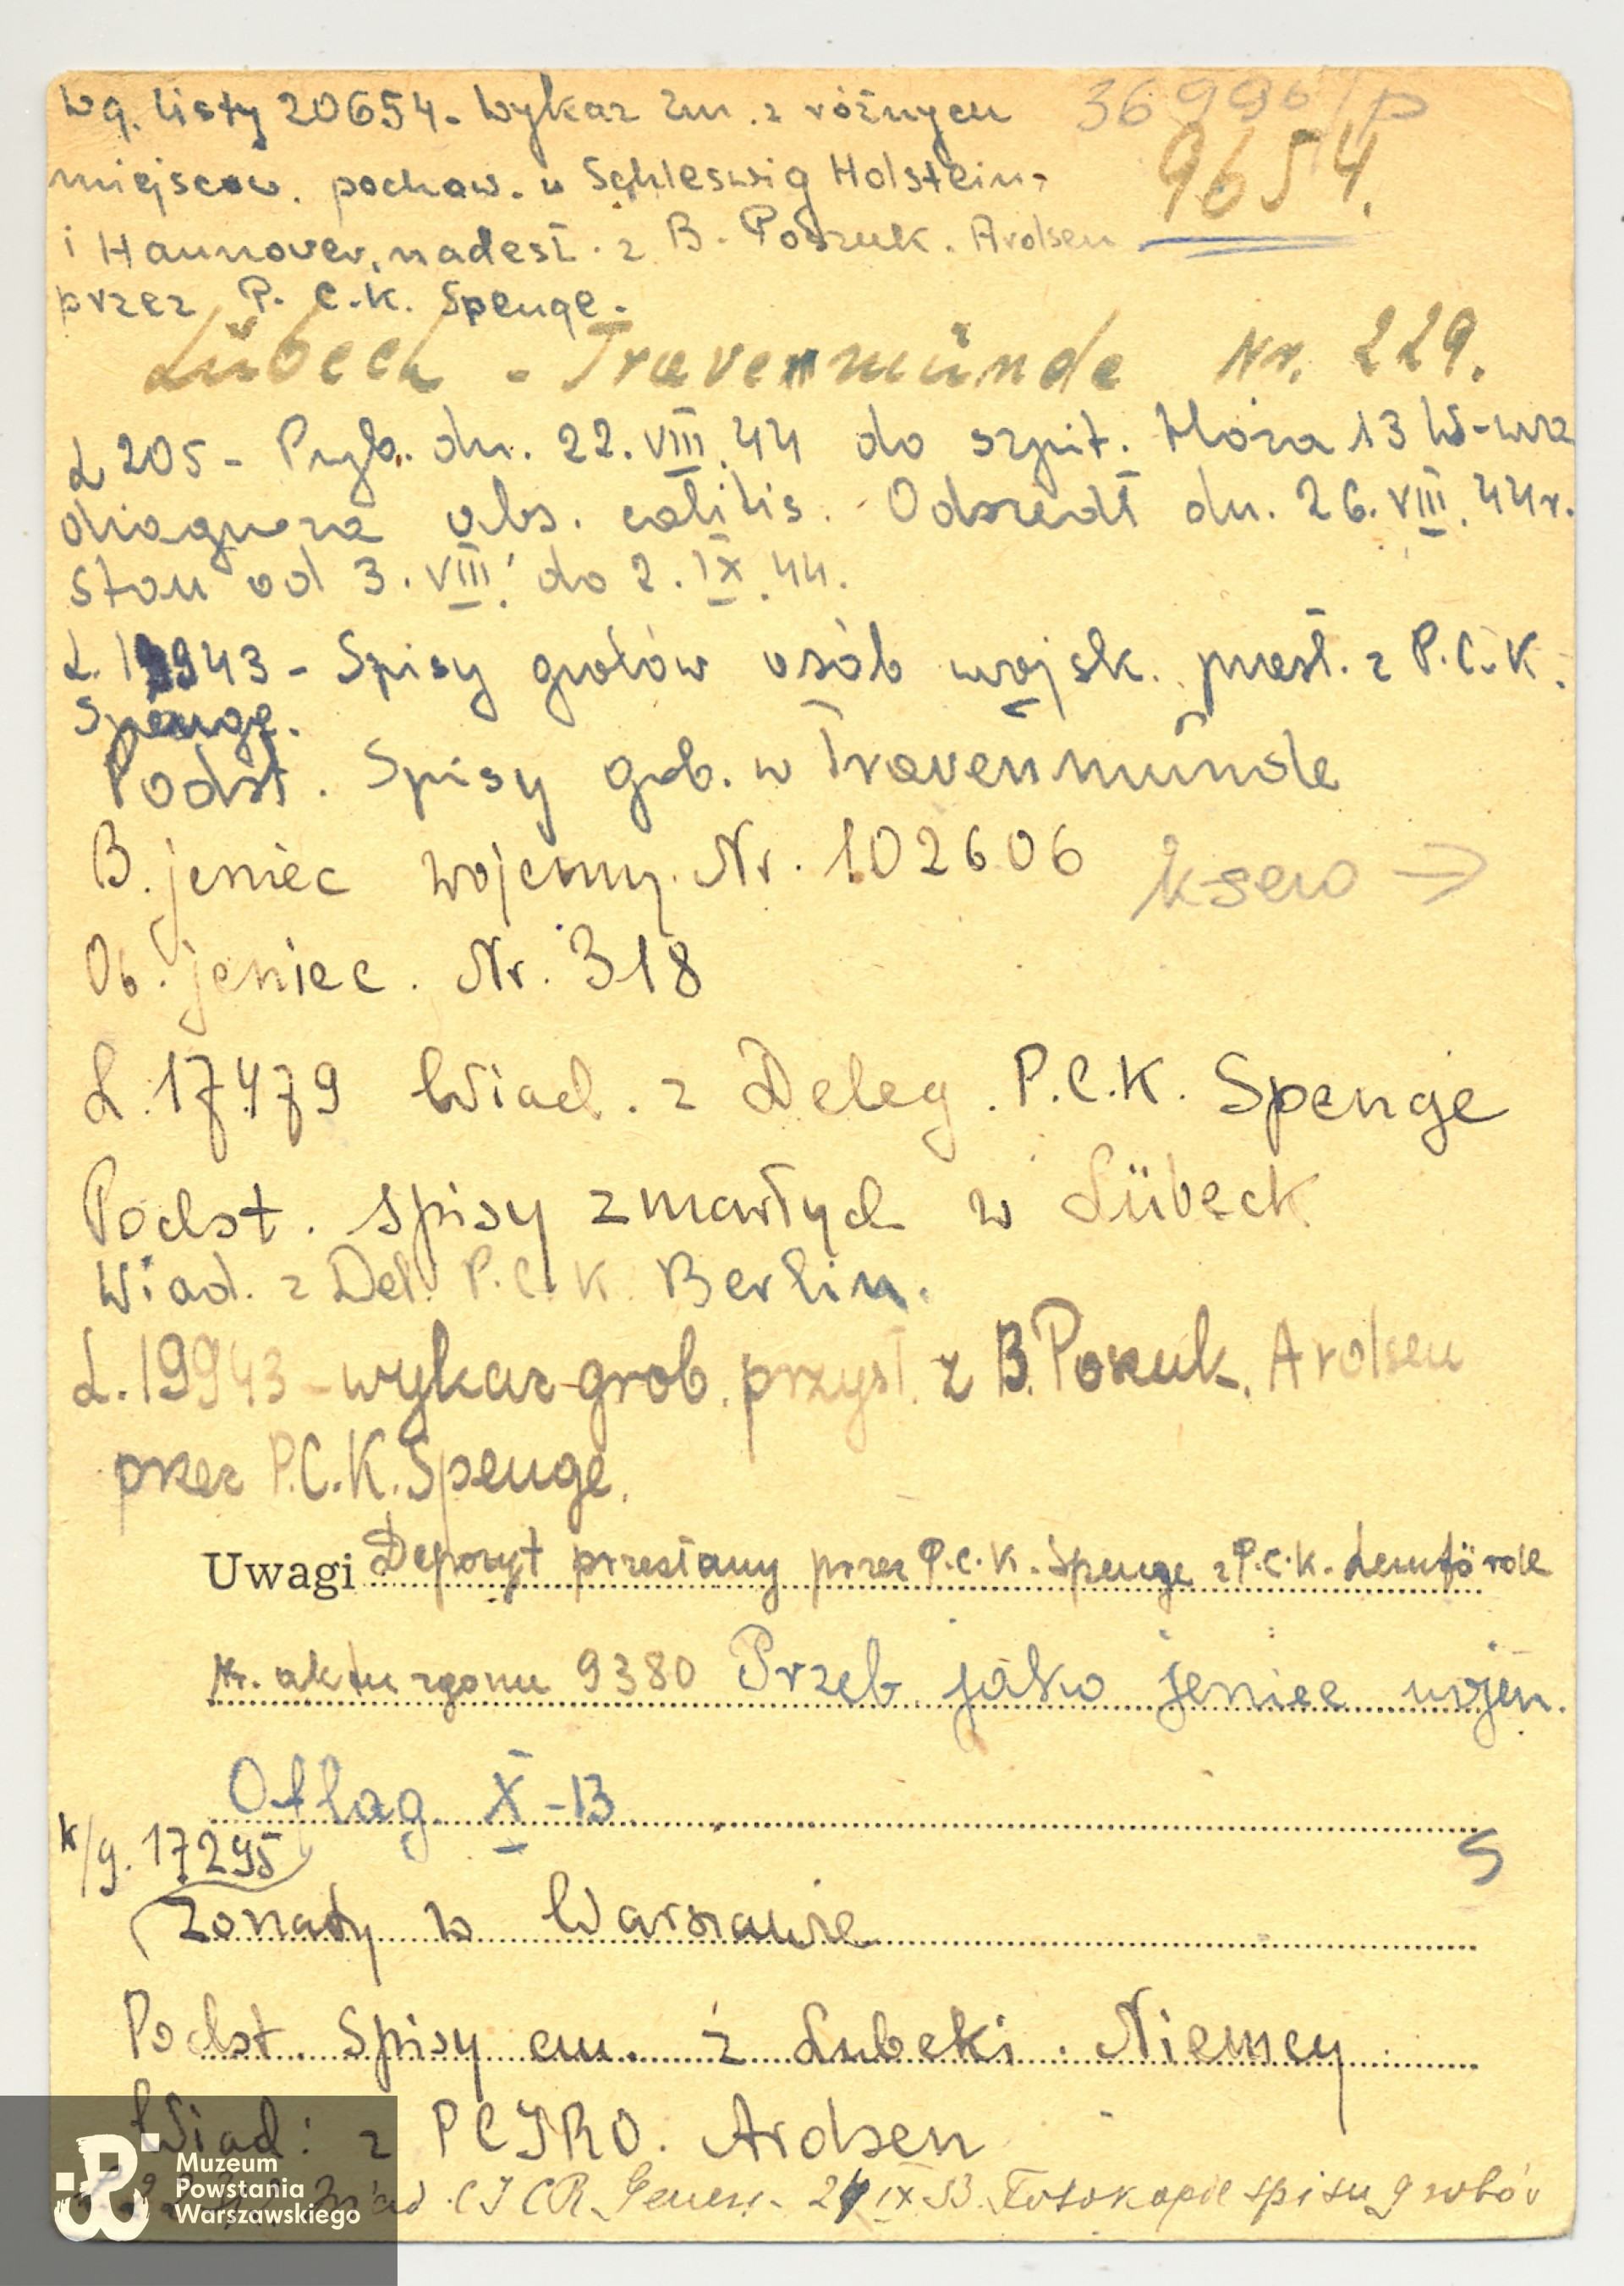 Wg. listy 20654 - Wykaz zm. z różnych
9654.
miejscow. pochow. w Schleswig Holstein
i Hannover, nadesł. z B. Poszuk. Arolsen
przez P.C.K. Spenge.
Lübeck - Travemünde Nr. 229.
Ł 205 - Przyb. dn. 22.VIII.44 do szpit. Hoża 13 W-wa
diagnoza obs. colitis. Odszedł dn. 26.VIII.44r.
stan od 3.VIII. do 2.IX.44.
Ł. 19943 - Spisy grobów osób wojsk. przesł. z P.C.K.
Spenge.
Podst. Spisy grob. w Travenmünde
B. jeniec wojenny. Nr. 102606 ksero →
Ob. jeniec. Nr. 318
Ł. 17479 Wiad. z Deleg. P.C.K. Spenge
Podst. spisy zmarłych w Lübeck
Wiad. z Del. P.C.K. Berlin.
Ł. 19943 - wykaz grob. przysł. z B. Poszuk. Arolsen
przez P.C.K. Spenge.
Uwagi Depozyt przesłany przez P.C.K. Spenge z P.C.K. Lemförde
Nr. aktu zgonu 9380 Przeb. jako jeniec wojen.
Oflag X-
k/g. 17295
5
w Warszawie
Podst. Spisy cm. z Lubeki. Niemcy
Wiad: z PCIRO. Arolsen
Wiad. CICR. 24 IX 53. Fotokopie spisu grobów
Muzeum
Powstania
Warszawskiego